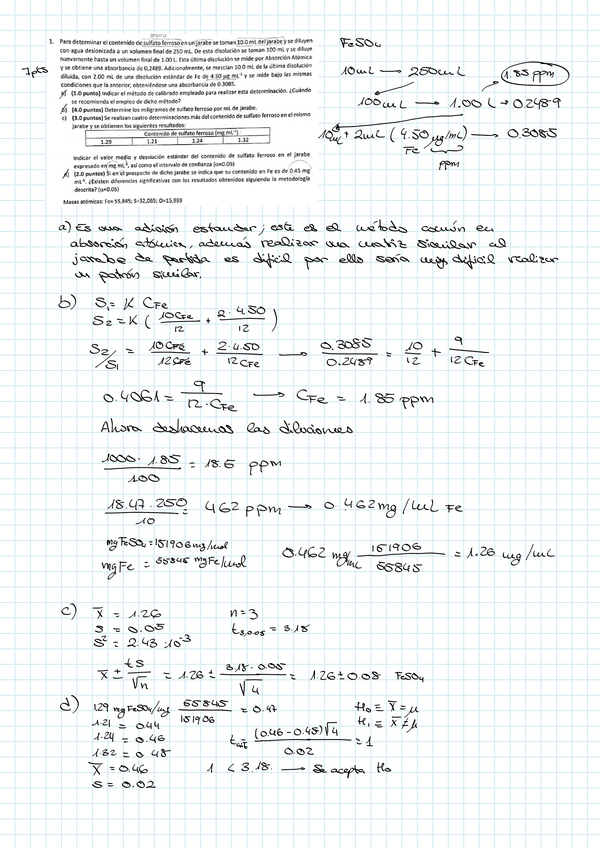 1. Para determinar el contenido de sulfato ferroso en un jarabe se toman 10.0 mL del jarabe y se diluyen
con agua desionizada a un volumen final de 250 mL. De esta disolución se toman 100 mL y se diluye
nuevamente hasta un volumen final de 1.00 L. Esta última disolución se mide por Absorción Atómica
y se obtiene una absorbancia de 0,2489. Adicionalmente, se mezclan 10.0 mL de la última disolución
diluida, con 2.00 mL de una disolución estándar de Fe de 4.50 µg mL⁻¹ y se mide bajo las mismas
condiciones que la anterior, obteniéndose una absorbancia de 0.3085.
a) (1.0 puntos) Indicar el método de calibrado empleado para realizar esta determinación. ¿Cuándo
se recomienda el empleo de dicho método?
b) (4.0 puntos) Determine los miligramos de sulfato ferroso por mL de jarabe.
c) (3.0 puntos) Se realizan cuatro determinaciones más del contenido de sulfato ferroso en el mismo
jarabe y se obtienen los siguientes resultados:
Contenido de sulfato ferroso (mg mL⁻¹)
1.29 1.21 1.24 1.32
Indicar el valor medio y desviación estándar del contenido de sulfato ferroso en el jarabe
expresado en mg mL⁻¹, así como el intervalo de confianza (α=0.05)
d) (2.0 puntos) Si en el prospecto de dicho jarabe se indica que su contenido en Fe es de 0.45 mg
mL⁻¹. ¿Existen diferencias significativas con los resultados obtenidos siguiendo la metodología
descrita? (α=0.05)
Masas atómicas: Fe= 55,845; S=32,065; O=15,999
7pts
FeSO4
10mL → 250mL
1.85 ppm
100mL → 1.00 L → 0.2489
10mL + 2mL (4.50 µg/mL) → 0.3085
Fe
ppm
a) Es una adición estandar; este es el método común en
absorción atómica, además realizar una matriz similar al
jarabe de partida es dificil por ello sería muy dificil realizar
un patrón similar.
b) S1 = K CFe
S2 = K ( 10CFe/12 + 2·4.50/12 )
S2/S1 = 10CFe/12CFe + 2·4.50/12CFe → 0.3085/0.2489 = 10/12 + 9/12CFe
0.4061 = 9/12·CFe → CFe = 1.85 ppm
Ahora deshacemos las diluciones
1000·1.85/100 = 18.5 ppm
18.47·250/10 = 462 ppm → 0.462mg/mL Fe
mgFeSO4 = 151906mg/mol
mgFe = 55845 mgFe/mol
0.462 mg/mL 151906/55845 = 1.26 mg/mL
c) x̄ = 1.26 n=3
s = 0.05 t3,0.05 = 3.18
s² = 2.43·10⁻³
x̄ ± ts/√n = 1.26 ± 3.18·0.05/√4 = 1.26 ± 0.08 FeSO4
d) 1.29 mgFeSO4/mL 55845/151906 = 0.47 H0 ≡ x̄ = µ
1.21 = 0.44 H1 ≡ x̄ ≠ µ
1.24 = 0.46 = (0.46-0.45)√4/0.02 = 1
1.32 = 0.48
x̄ = 0.46 1 < 3.18. → Se acepta H0
s = 0.02